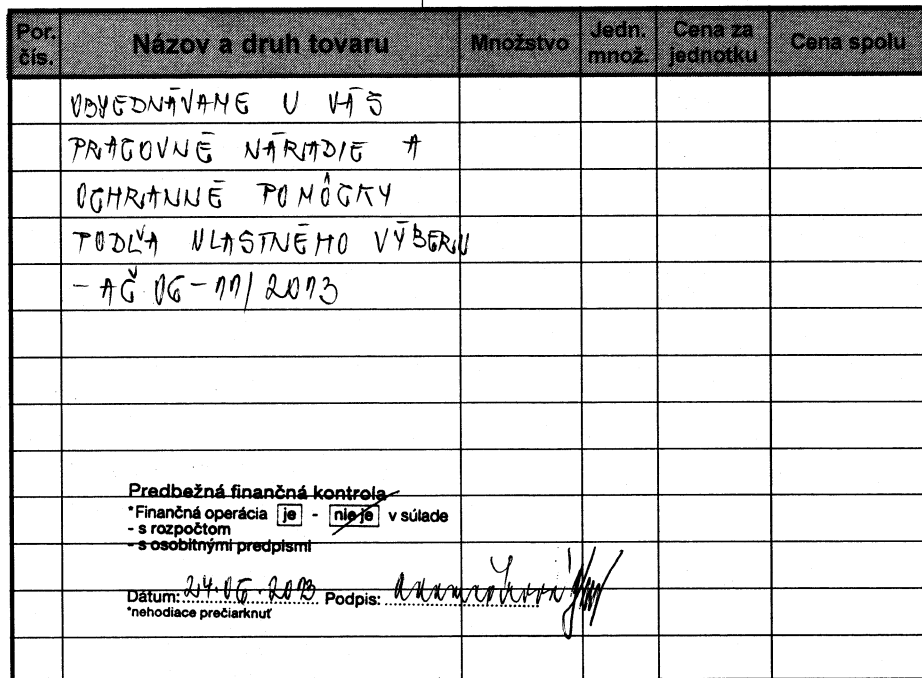 Por. čís. Názov a druh tovaru Množstvo Jedn. množ. Cena za jednotku Cena spolu
OBJEDNÁVAME U VÁS
PRACOVNÉ NÁRADIE A
OCHRANNÉ POMÔCKY
PODĽA VLASTNÉHO VÝBERU
- AČ 06-11/2013
Predbežná finančná kontrola
*Finančná operácia je - nie je v súlade
- s rozpočtom
- s osobitnými predpismi
Dátum: 24.06.2013 Podpis:
*nehodiace prečiarknuť